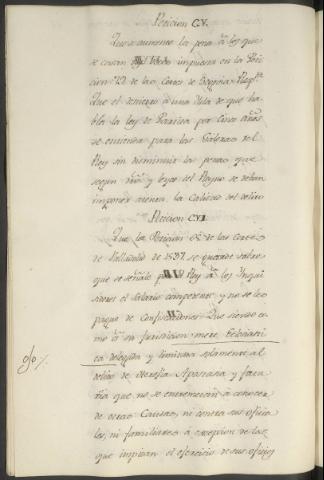 Peticion CV.
Que se aumente la pena à los que
se casan dos veces impuesta en la Peti-
cion 72 de las Cortes de
Que el destierro à una Isla de que ha-
bla la ley de Partida por cinco años
se entienda para las Galeras del
Rey sin disminuir las penas que
segun dro y leyes del Reyno se deban
imponer atenta la calidad del delito
Peticion CVI
Que la Peticion de las Cortes
de Valladolid de 1537 se guarde sobre
que se señale por el Rey à los Inqui-
sidores el salario competente y no se les
pague de Confiscaciones. Que siendo co-
mo es su Jurisdicion mere Eclesiasti-
ca delegada y limitada solamente al
delito de Heregia Apostasia y
que no se entremetan à conocer
de otras Causas, ni contra sus oficia-
les, ni familiares à excepcion de las
que impidan el ejercicio de sus oficios